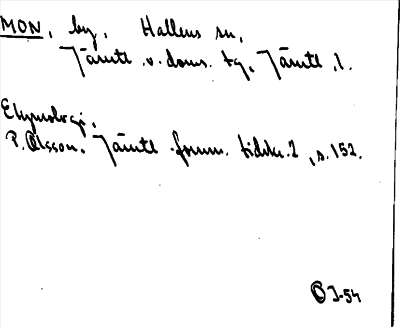 MON, by, Hallens sn,
Jämtl. v. doms. tg, Jämtl. l.
Etymologi,
P. Olsson, Jämtl. fornm. tidskr. 2, s. 152.
J-54